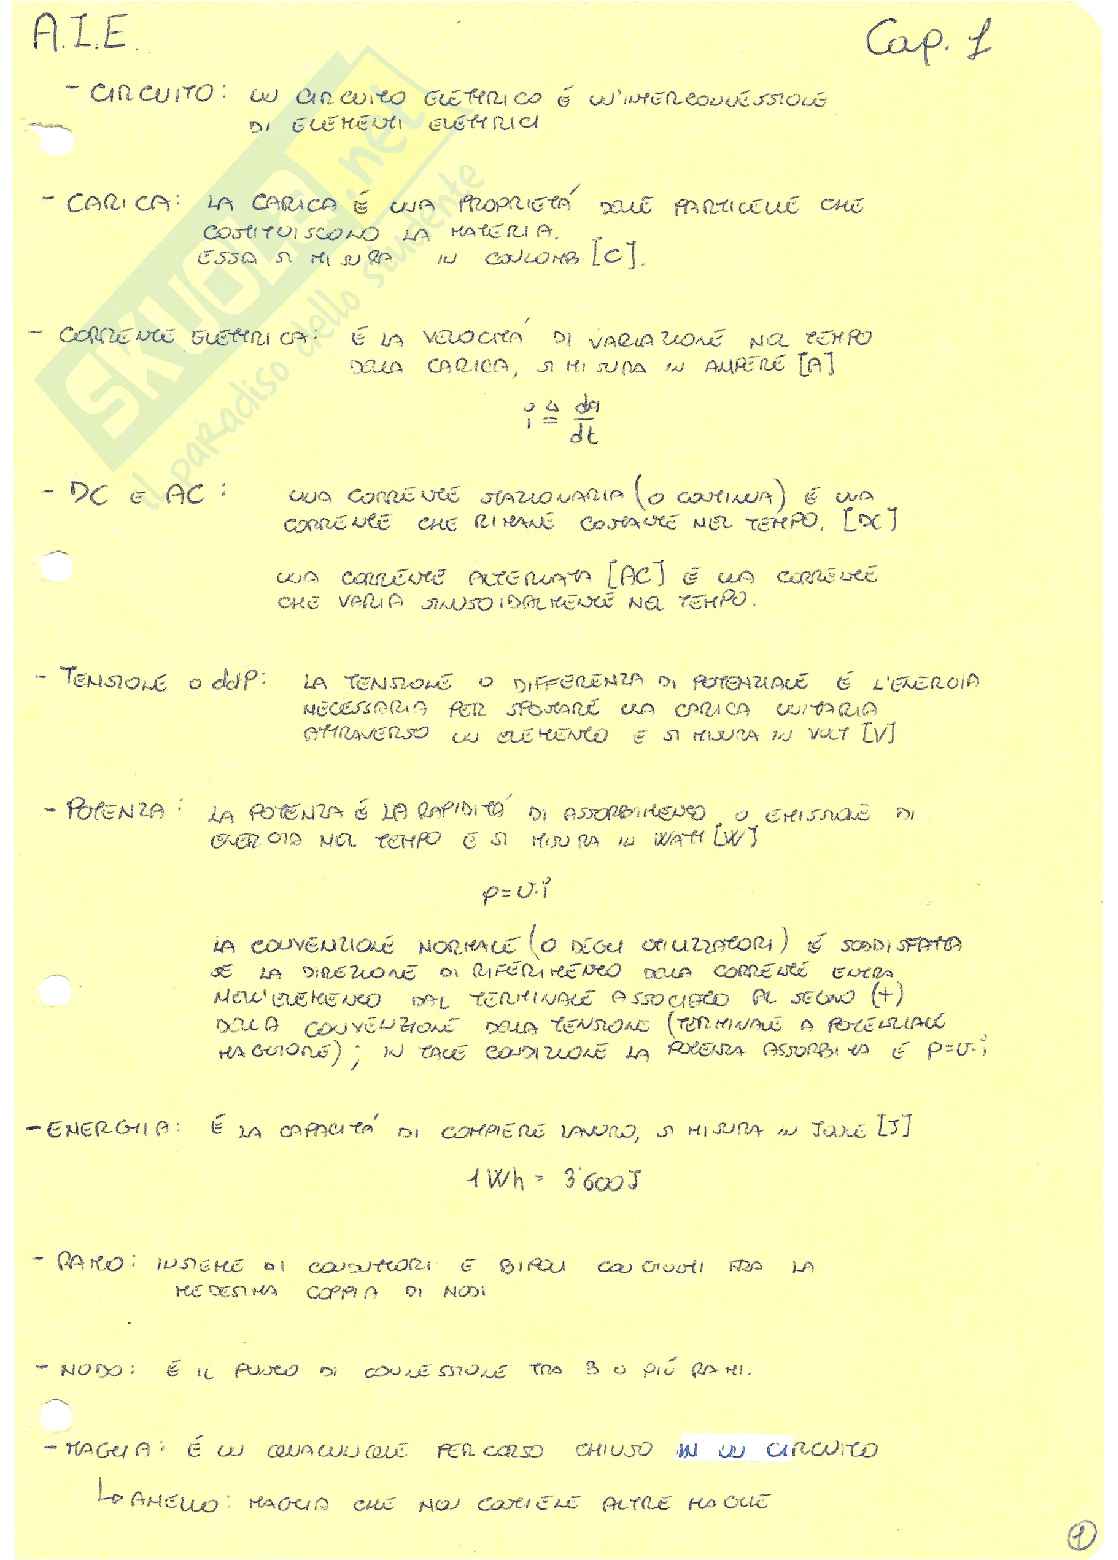 A.I.E.
Cap. 1
- CIRCUITO: UN CIRCUITO ELETTRICO É UN'INTERCONNESSIONE
DI ELEMENTI ELETTRICI
- CARICA: LA CARICA É UNA PROPRIETÁ DELLE PARTICELLE CHE
COSTITUISCONO LA MATERIA.
ESSA SI MISURA IN COULOMB [C].
- CORRENTE ELETTRICA: É LA VELOCITÁ DI VARIAZIONE NEL TEMPO
DELLA CARICA, SI MISURA IN AMPÉRE [A]
i ≜ dq/dt
- DC E AC: UNA CORRENTE STAZIONARIA (O CONTINUA) É UNA
CORRENTE CHE RIMANE COSTANTE NEL TEMPO. [DC]
UNA CORRENTE ALTERNATA [AC] É UNA CORRENTE
CHE VARIA SINUSOIDALMENTE NEL TEMPO.
- TENSIONE O ddP: LA TENSIONE O DIFFERENZA DI POTENZIALE É L'ENERGIA
NECESSARIA PER SPOSTARE UNA CARICA UNITARIA
ATTRAVERSO UN ELEMENTO E SI MISURA IN VOLT [V]
- POTENZA: LA POTENZA É LA RAPIDITÁ DI ASSORBIMENTO O EMISSIONE DI
ENERGIA NEL TEMPO E SI MISURA IN WATT [W]
p=v·i
LA CONVENZIONE NORMALE (O DEGLI UTILIZZATORI) É SODDISFATTA
SE LA DIREZIONE DI RIFERIMENTO DELLA CORRENTE ENTRA
NELL'ELEMENTO DAL TERMINALE ASSOCIATO AL SEGNO (+)
DELLA CONVENZIONE DELLA TENSIONE (TERMINALE A POTENZIALE
MAGGIORE); IN TALE CONDIZIONE LA POTENZA ASSORBITA É p=v·i
- ENERGIA: É LA CAPACITÁ DI COMPIERE LAVORO, SI MISURA IN JOULE [J]
1Wh = 3'600J
- RAMO: INSIEME DI CONDUTTORI E BIPOLI CONGIUNTI FRA LA
MEDESIMA COPPIA DI NODI
- NODO: É IL PUNTO DI CONNESSIONE TRA 3 O PIÚ RAMI.
- MAGLIA: É UN QUALUNQUE PERCORSO CHIUSO IN UN CIRCUITO
↳ ANELLO: MAGLIA CHE NON CONTIENE ALTRE MAGLIE
1
SKUOLA.net
il paradiso dello studente